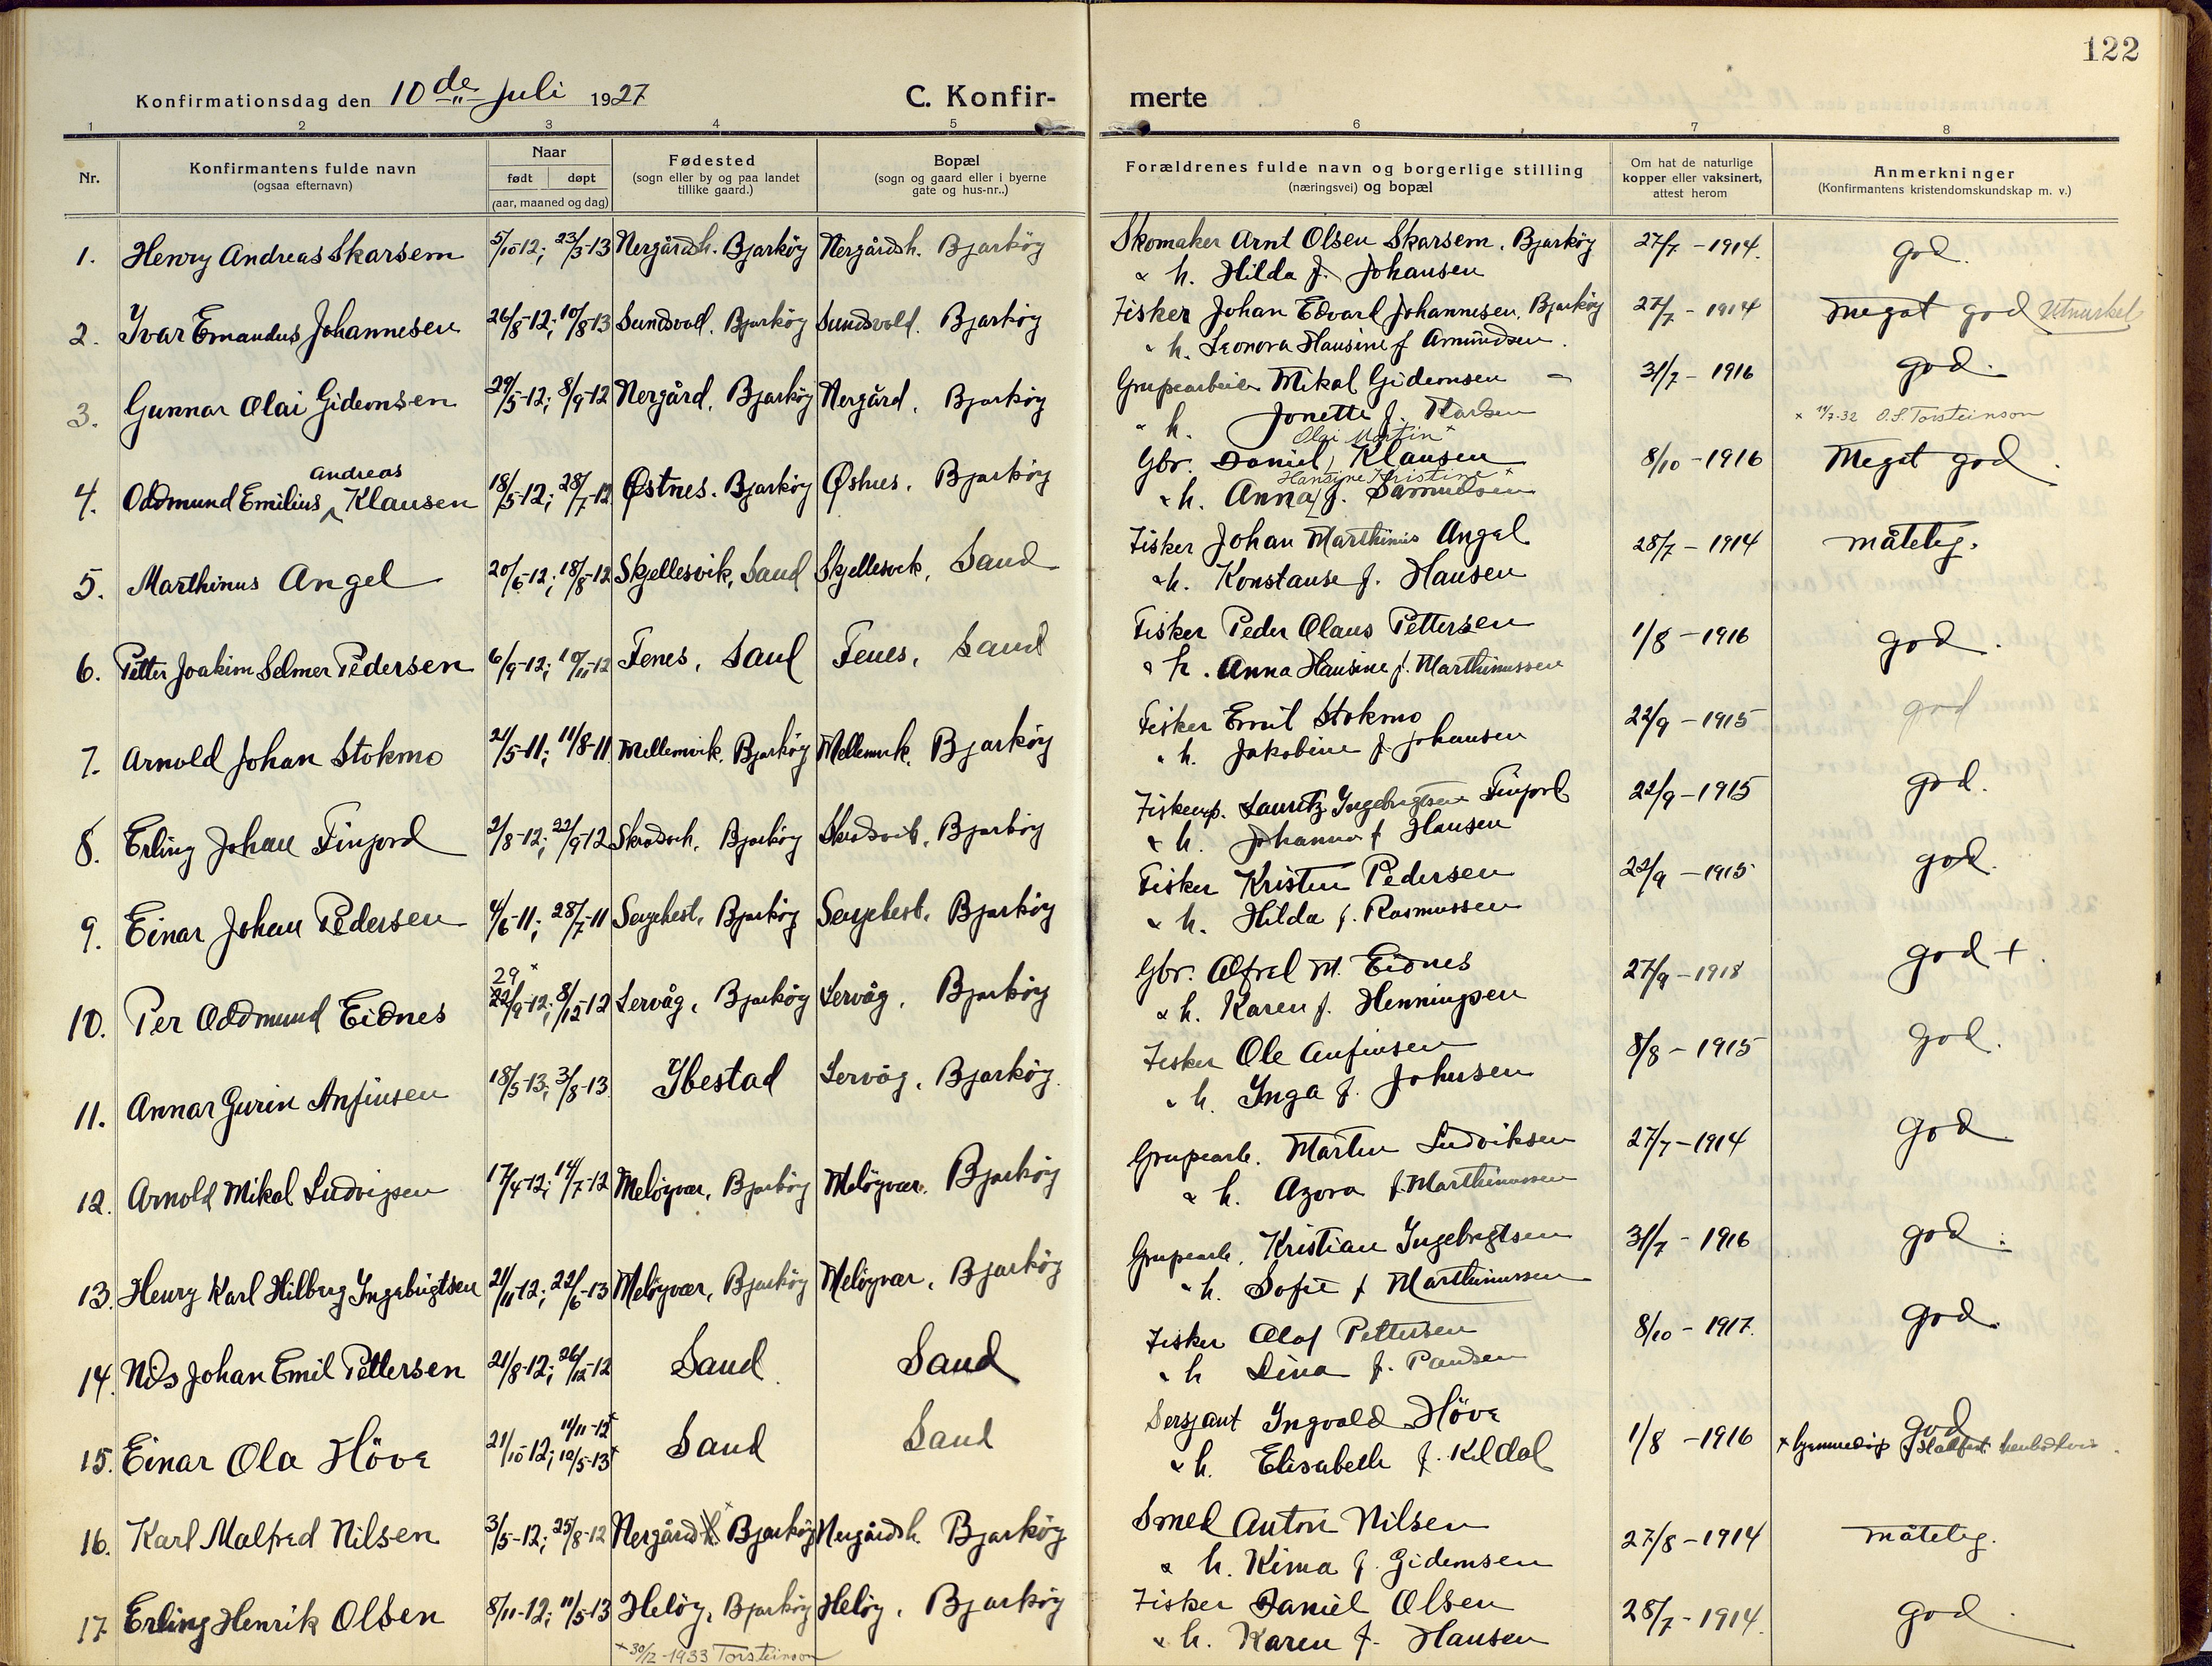 122
Konfirmationsdag den 10de Juli 1927
C. Konfir-
merte
1 2 3 4 5 6 7 8
Nr.
Konfirmantens fulde navn
(ogsaa efternavn)
Naar
født døpt
(aar, maaned og dag)
Fødested
(sogn eller by og paa landet
tillike gaard.)
Bopæl
(sogn og gaard eller i byerne
gate og hus-nr..)
Forældrenes fulde navn og borgerlige stilling
(næringsvei) og bopæl
Om hat de naturlige
kopper eller vaksinert,
attest herom
Anmerkninger
(Konfirmantens kristendomskundskap m. v.)
1. Henry Andreas Skarsem 5/10-12; 23/3-13 Nergårdsh. Bjarköy Nergårdsh. Bjarköy Skomaker Arnt Olsen Skarsem, Bjarköy 27/7-1914. god.
& h. Hilda f. Johansen
2. Ivar Emandus Johannesen 26/8-12; 10/8-13 Sundsvold. Bjarköy Sundsvold. Bjarköy Fisker Johan Edvard Johannesen, Bjarköy 27/7-1914 meget god
" h. Leonora Hansine f Amundsen.
3. Gunnar Olai Gideonsen 29/5-12; 8/9-12 Nergård, Bjarköy Nergård, Bjarköy Grupearbeider Mikal Gideonsen - 31/7-1916 god.
" h. Jonette f. Karlsen
x 11/7-32 O.S. Torsteinson
Olai Martin x
Andreas
4. Oddmund Emilius Klausen 18/5-12; 28/7-12 Østnes. Bjarköy Østnes, Bjarköy Gbr. Daniel, Klausen 8/10-1916 Meget god.
Hansine Kristine x
& h. Anna f. Samuelsen
5. Marthinus Angel 20/6-12; 18/8-12 Skjellesvik, Sand Skjellesvik, Sand Fisker Johan Marthinus Angel 28/7-1914 måtelig.
& h. Konstanse f. Hansen
6. Petter Joakim Selmer Pedersen 6/9-12; 10/11-12 Fenes, Sand Fenes, Sand Fisker Peder Olaus Pettersen 1/8-1916 god.
& h. Anna Hansine f. Marthinussen
7. Arnold Johan Stokmo 21/5-11; 11/8-11 Mellemvik. Bjarköy Mellemvik. Bjarköy Fisker Emil Stokmo 22/9-1915 god
" h. Jakobine f Johansen
8. Erling Johan Finjord 2/8-12; 22/9-12 Bjarköy Bjarköy Lauritz Ingebrigtsen Finjord 22/9-1915 god.
& h. Johanna f Hansen
9. Einar Johan Pedersen 4/6-11; 28/7-11 Bjarköy Bjarköy Fisker Kristen Pedersen 22/9-1915 god.
& h. Hilda f. Rasmussen
29 x
10. Per Oddmund Eidnes 22/9-12; 8/12-12 Lervåg, Bjarköy Lervåg, Bjarköy Gbr. Alfred M. Eidnes 27/9-1918 god +.
& h. Karen f. Henningsen
11. Annar Gurin Anfinsen 18/5-13; 3/8-13 Ibestad Lervåg, Bjarköy. Fisker Ole Anfinsen 8/8-1915 god.
" h. Inga f. Johnsen
12. Arnold Mikal Ludvigsen 17/4-12; 14/7-12 Melöyvær, Bjarköy Melöyvær, Bjarköy Grupearb. Martin Ludviksen 27/7-1914 god
& h. Azora f. Marthinussen
13. Henry Karl Hilberg Ingebrigtsen 21/11-12; 22/6-13 Melöyvær, Bjarköy Melöyvær, Bjarköy Grupearb. Kristian Ingebrigtsen 31/7-1916 god.
" h. Sofie f Marthinussen
14. Nils Johan Emil Pettersen 21/8-12; 26/12-12 Sand Sand Fisker Olaf Pettersen 8/10-1917. god.
" h Lina f. Paulsen
11/11-12 x
15. Einar Ola Höve 21/10-12; 12/5-13 x Sand Sand Sersjant Ingvald Höve 1/8-1916 god
& h. Elisabeth f. Kildal
x hjemmedöp
16. Karl Malfred Nilsen 3/5-12; 25/8-12 Nergårdsh. x Bjarköy Nergårdsh. Bjarköy Smed Anton Nilsen 27/8-1914 måtelig.
& h. Kima f. Gideonsen
17. Erling Henrik Olsen 8/11-12; 11/5-13 Helöy, Bjarköy Helöy, Bjarköy Fisker Daniel Olsen 28/7-1914. god.
& h. Karen f. Hansen
x 30/12-1933 Torsteinson